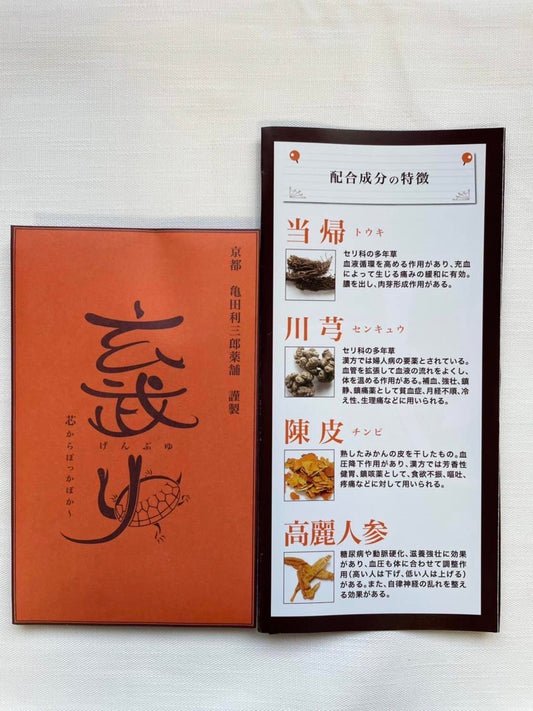 京都 亀田利三郎薬舗 謹製
玄武ゆ
げんぶゆ
芯からぽっかぽか〜
配合成分の特徴
当帰 トウキ
セリ科の多年草
血液循環を高める作用があり、充血
によって生じる痛みの緩和に有効。
膿を出し、肉芽形成作用がある。
川芎 センキュウ
セリ科の多年草
漢方では婦人病の要薬とされている。
血管を拡張して血液の流れをよくし、
体を温める作用がある。補血、強壮、鎮
静、鎮痛薬として貧血症、月経不順、冷
え性、生理痛などに用いられる。
陳皮 チンピ
熟したみかんの皮を干したもの。血
圧降下作用があり、漢方では芳香性
健胃、鎮咳薬として、食欲不振、嘔吐、
疼痛などに対して用いられる。
高麗人参
糖尿病や動脈硬化、滋養強壮に効果
があり、血圧も体に合わせて調整作
用(高い人は下げ、低い人は上げる)
がある。また、自律神経の乱れを整え
る効果がある。